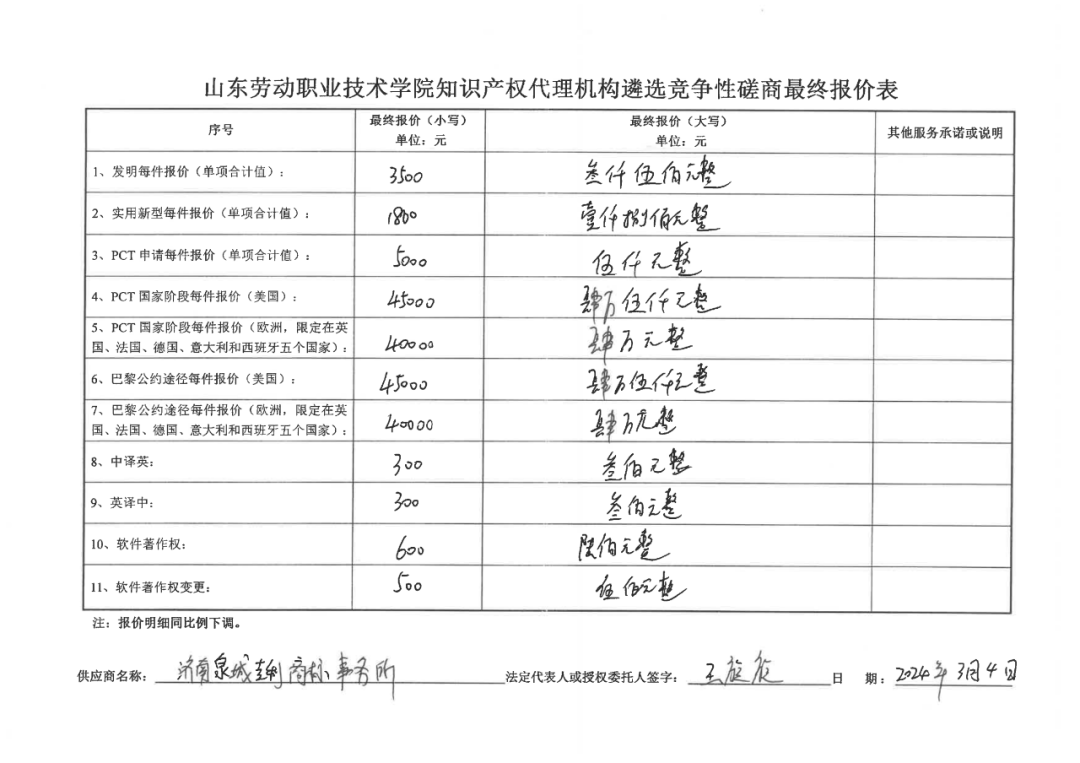 山东劳动职业技术学院知识产权代理机构遴选竞争性磋商最终报价表
序号 最终报价（小写）单位：元 最终报价（大写）单位：元 其他服务承诺或说明
1、发明每件报价（单项合计值）： 3500 叁仟伍佰元整
2、实用新型每件报价（单项合计值）： 1800 壹仟捌佰元整
3、PCT 申请每件报价（单项合计值）： 5000 伍仟元整
4、PCT 国家阶段每件报价（美国）： 45000 肆万伍仟元整
5、PCT 国家阶段每件报价（欧洲，限定在英
国、法国、德国、意大利和西班牙五个国家）： 40000 肆万元整
6、巴黎公约途径每件报价（美国）： 45000 肆万伍仟元整
7、巴黎公约途径每件报价（欧洲，限定在英
国、法国、德国、意大利和西班牙五个国家）： 40000 肆万元整
8、中译英： 300 叁佰元整
9、英译中： 300 叁佰元整
10、软件著作权： 600 陆佰元整
11、软件著作权变更： 500 伍佰元整
注：报价明细同比例下调。
供应商名称： 济南泉城专利商标事务所 法定代表人或授权委托人签字： 王 日 期： 2024年3月4日